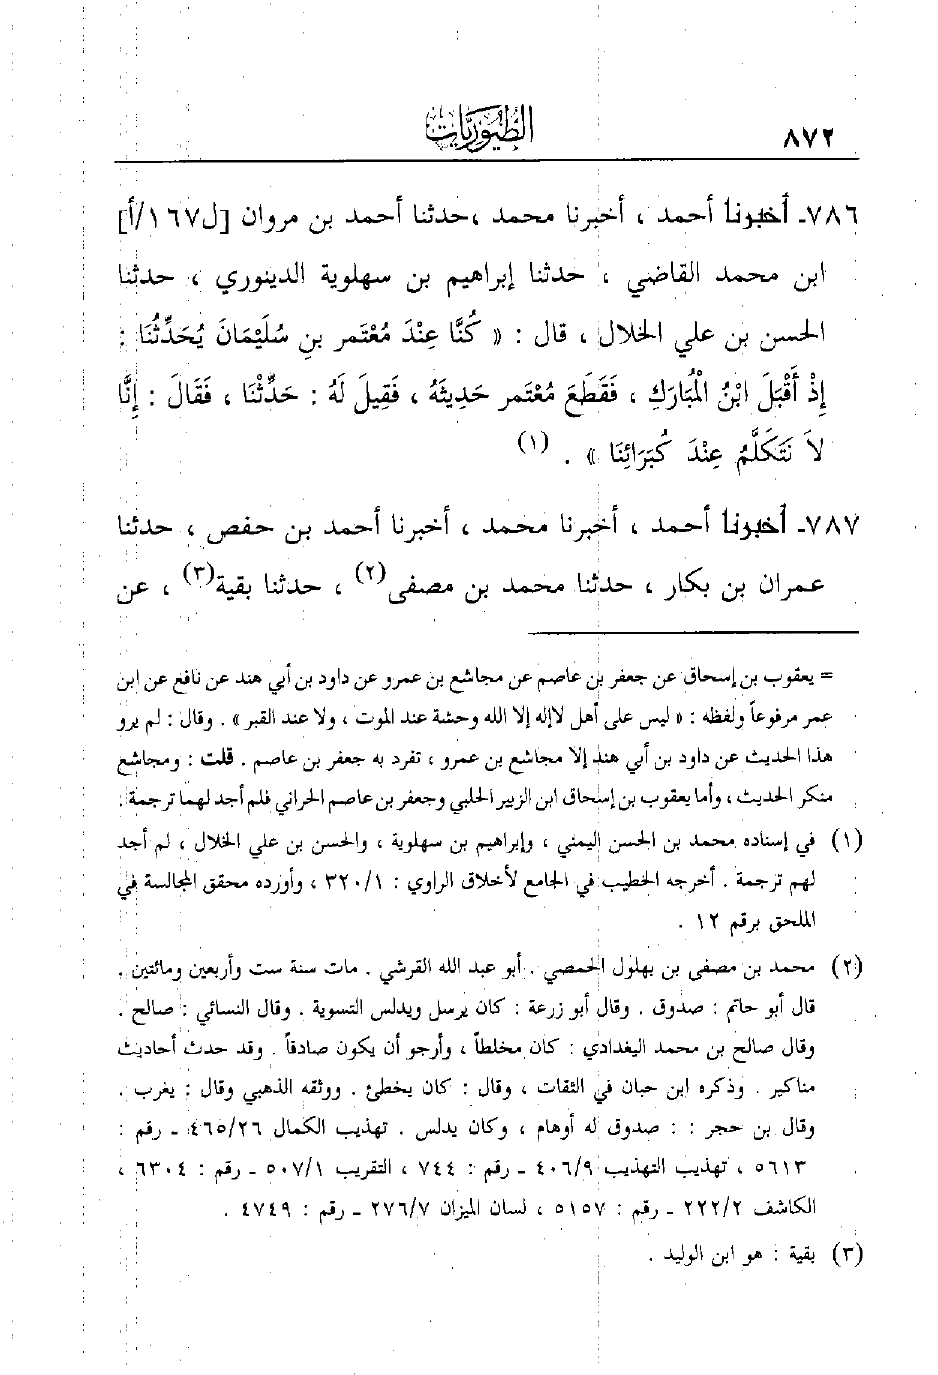 ٨٧٢
الطُّيُوْرِيَّات
٧٨٦- أخبرنا أحمد ، أخبرنا محمد ،حدثنا أحمد بن مروان [ل١٦٧/أ]
ابن محمد القاضي ، حدثنا إبراهيم بن سهلوية الدينوري ، حدثنا
الحسن بن علي الخلال ، قال : « كُنَّا عِنْدَ مُعْتَمر بنِ سُلَيْمَانَ يُحَدِّثُنَا :
إِذْ أَقْبَلَ ابْنُ الْمُبَارَكِ ، فَقَطَعَ مُعْتَمر حَدِيثَهُ ، فَقِيلَ لَهُ : حَدِّثْنَا ، فَقَالَ : إِنَّا
لاَ نَتَكَلَّمُ عِنْدَ كُبَرَائِنَا » . (١)
٧٨٧- أخبرنا أحمد ، أخبرنا محمد ، أخبرنا أحمد بن حفص ، حدثنا
عمران بن بكار ، حدثنا محمد بن مصفى(٢) ، حدثنا بقية(٣) ، عن
= يعقوب بن إسحاق عن جعفر بن عاصم عن مجاشع بن عمرو عن داود بن أبي هند عن نافع عن ابن
عمر مرفوعاً ولفظه : « ليس على أهل لاإله إلا الله وحشة عند الموت ، ولا عند القبر » . وقال : لم يرو
هذا الحديث عن داود بن أبي هند إلا مجاشع بن عمرو ، تفرد به جعفر بن عاصم . قلت : ومجاشع
منكر الحديث ، وأما يعقوب بن إسحاق ابن الزبير الحلبي وجعفر بن عاصم الحراني فلم أجد لهما ترجمة .
(١) في إسناده محمد بن الحسن اليمني ، وإبراهيم بن سهلوية ، والحسن بن علي الخلال ، لم أجد
لهم ترجمة . أخرجه الخطيب في الجامع لأخلاق الراوي : ٣٢٠/١ ، وأورده محقق المجالسة في
الملحق برقم ١٢ .
(٢) محمد بن مصفى بن بهلول الحمصي . أبو عبد الله القرشي . مات سنة ست وأربعين ومائتين .
قال أبو حاتم : صدوق . وقال أبو زرعة : كان يرسل ويدلس التسوية . وقال النسائي : صالح .
وقال صالح بن محمد البغدادي : كان مخلطاً ، وأرجو أن يكون صادقاً . وقد حدث أحاديث
مناكير . وذكره ابن حبان في الثقات ، وقال : كان يخطئ . ووثقه الذهبي وقال : يغرب .
وقال بن حجر : : صدوق له أوهام ، وكان يدلس . تهذيب الكمال ٤٦٥/٢٦ ـ رقم :
٥٦١٣ ، تهذيب التهذيب ٤٠٦/٩ ـ رقم : ٧٤٤ ، التقريب ٥٠٧/١ ـ رقم : ٦٣٠٤ ،
الكاشف ٢٢٢/٢ ـ رقم : ٥١٥٧ ، لسان الميزان ٢٧٦/٧ ـ رقم : ٤٧٤٩ .
(٣) بقية : هو ابن الوليد .